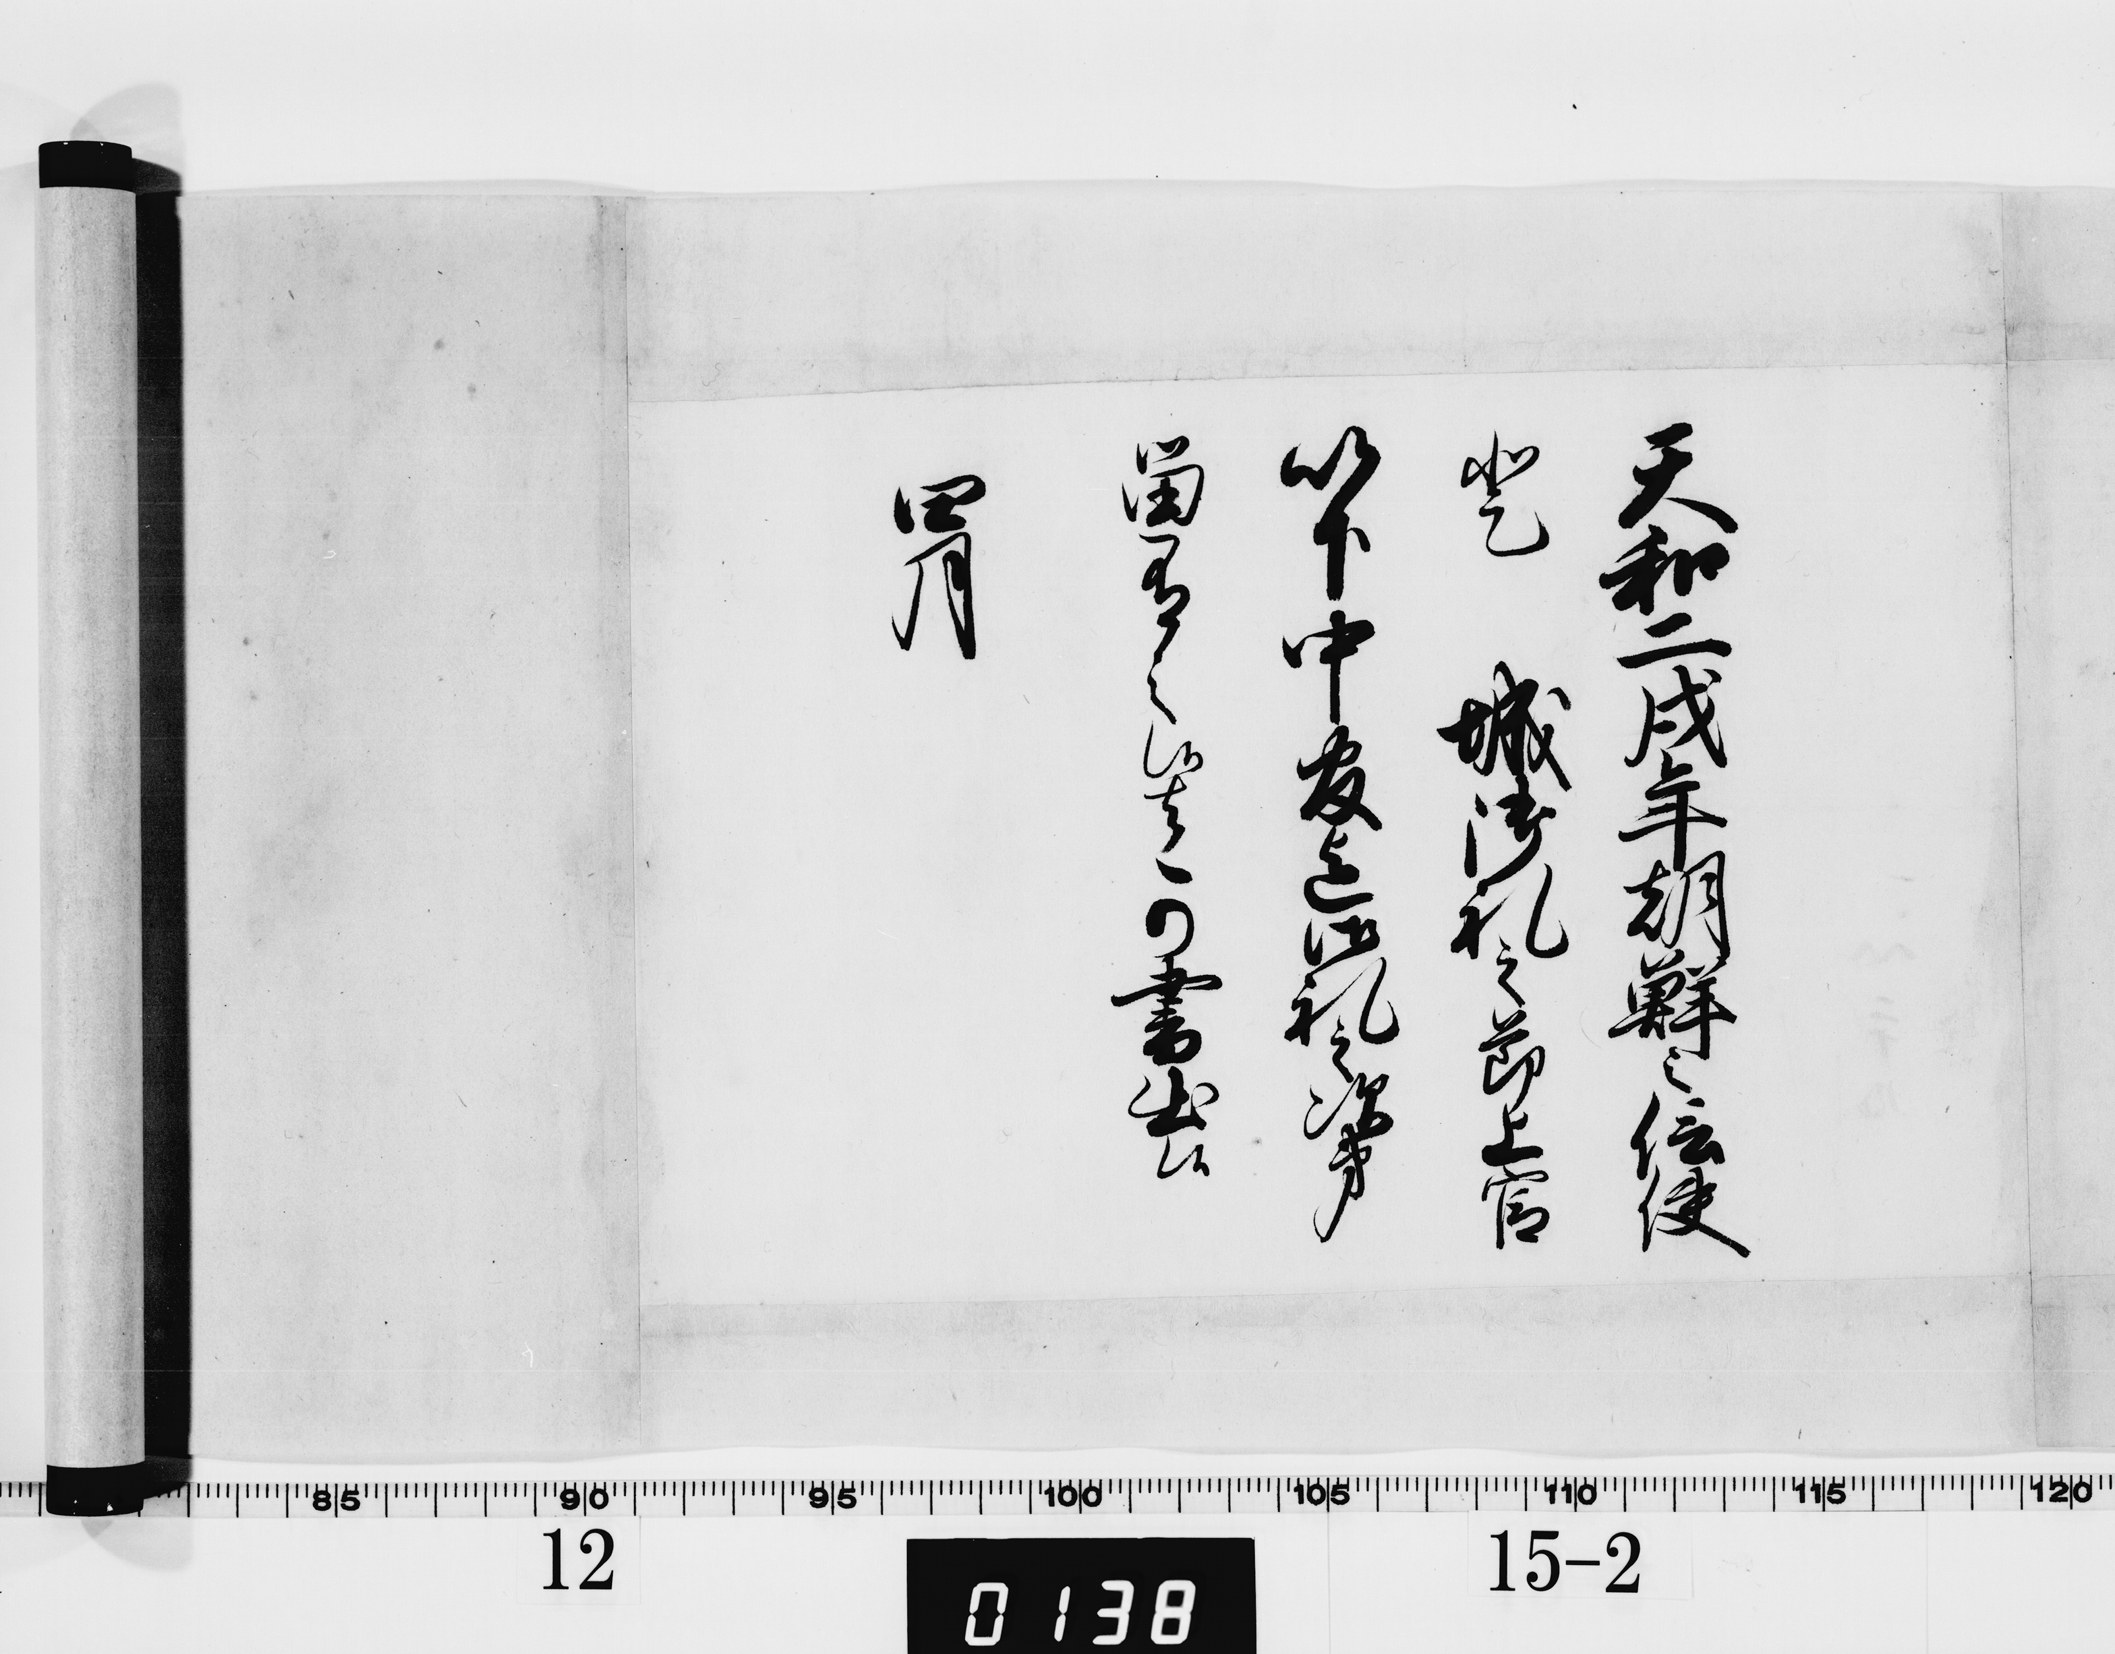 天和二戌年朝鮮之信使
登　城御礼之節上官
以下中官迄御礼之次第
留有之候ハヽ可書出候
四月
85 90 95 100 105 110 115 120
12
0138
15-2